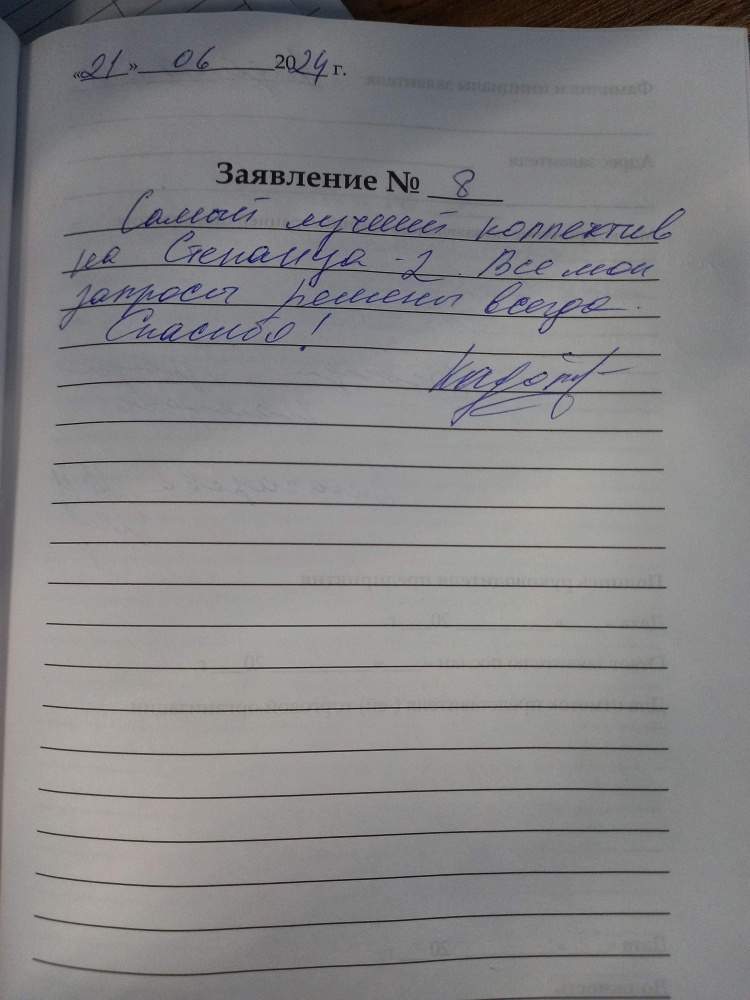 «21» 06 2024 г.
Заявление № 8
Самый лучший коллектив
на Степанца - 2. Все мои
запросы решены всегда.
Спасибо!